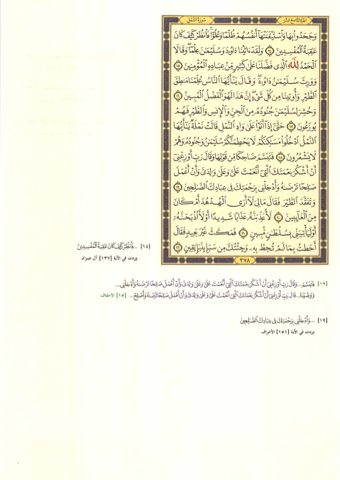 الجزء التاسع عشر
سورة النمل
وَجَحَدُوا۟ بِهَا وَٱسْتَيْقَنَتْهَآ أَنفُسُهُمْ ظُلْمًا وَعُلُوًّا فَٱنظُرْ كَيْفَ كَانَ
عَٰقِبَةُ ٱلْمُفْسِدِينَ ١٤ وَلَقَدْ ءَاتَيْنَا دَاوُۥدَ وَسُلَيْمَٰنَ عِلْمًا وَقَالَا
ٱلْحَمْدُ لِلَّهِ ٱلَّذِى فَضَّلَنَا عَلَىٰ كَثِيرٍ مِّنْ عِبَادِهِ ٱلْمُؤْمِنِينَ ١٥
وَوَرِثَ سُلَيْمَٰنُ دَاوُۥدَ وَقَالَ يَٰٓأَيُّهَا ٱلنَّاسُ عُلِّمْنَا مَنطِقَ
ٱلطَّيْرِ وَأُوتِينَا مِن كُلِّ شَىْءٍ إِنَّ هَٰذَا لَهُوَ ٱلْفَضْلُ ٱلْمُبِينُ ١٦
وَحُشِرَ لِسُلَيْمَٰنَ جُنُودُهُۥ مِنَ ٱلْجِنِّ وَٱلْإِنسِ وَٱلطَّيْرِ فَهُمْ
يُوزَعُونَ ١٧ حَتَّىٰٓ إِذَآ أَتَوْا۟ عَلَىٰ وَادِ ٱلنَّمْلِ قَالَتْ نَمْلَةٌ يَٰٓأَيُّهَا
ٱلنَّمْلُ ٱدْخُلُوا۟ مَسَٰكِنَكُمْ لَا يَحْطِمَنَّكُمْ سُلَيْمَٰنُ وَجُنُودُهُۥ وَهُمْ
لَا يَشْعُرُونَ ١٨ فَتَبَسَّمَ ضَاحِكًا مِّن قَوْلِهَا وَقَالَ رَبِّ أَوْزِعْنِىٓ
أَنْ أَشْكُرَ نِعْمَتَكَ ٱلَّتِىٓ أَنْعَمْتَ عَلَىَّ وَعَلَىٰ وَٰلِدَىَّ وَأَنْ أَعْمَلَ
صَٰلِحًا تَرْضَىٰهُ وَأَدْخِلْنِى بِرَحْمَتِكَ فِى عِبَادِكَ ٱلصَّٰلِحِينَ ١٩
وَتَفَقَّدَ ٱلطَّيْرَ فَقَالَ مَالِىَ لَآ أَرَى ٱلْهُدْهُدَ أَمْ كَانَ
مِنَ ٱلْغَآئِبِينَ ٢٠ لَأُعَذِّبَنَّهُۥ عَذَابًا شَدِيدًا أَوْ لَأَا۟ذْبَحَنَّهُۥٓ
أَوْ لَيَأْتِيَنِّى بِسُلْطَٰنٍ مُّبِينٍ ٢١ فَمَكَثَ غَيْرَ بَعِيدٍ فَقَالَ
أَحَطتُ بِمَا لَمْ تُحِطْ بِهِۦ وَجِئْتُكَ مِن سَبَإٍۭ بِنَبَإٍ يَقِينٍ ٢٢
٣٧٨
[١٤] ...فَٱنظُرْ كَيْفَ كَانَ عَٰقِبَةُ ٱلْمُفْسِدِينَ
وردت في الآية [١٣٧] آل عمران
فَتَبَسَّمَ... وَقَالَ رَبِّ أَوْزِعْنِىٓ أَنْ أَشْكُرَ نِعْمَتَكَ ٱلَّتِىٓ أَنْعَمْتَ عَلَىَّ وَعَلَىٰ وَٰلِدَىَّ وَأَنْ أَعْمَلَ صَٰلِحًا تَرْضَىٰهُ وَأَدْخِلْنِى...
وَوَصَّيْنَا... قَالَ رَبِّ أَوْزِعْنِىٓ أَنْ أَشْكُرَ نِعْمَتَكَ ٱلَّتِىٓ أَنْعَمْتَ عَلَىَّ وَعَلَىٰ وَٰلِدَىَّ وَأَنْ أَعْمَلَ صَٰلِحًا تَرْضَىٰهُ وَأَصْلِحْ... [١٥] الأحقاف
[١٩] ...وَأَدْخِلْنِى بِرَحْمَتِكَ فِى عِبَادِكَ ٱلصَّٰلِحِينَ
وردت في الآية [١٥١] الأعراف